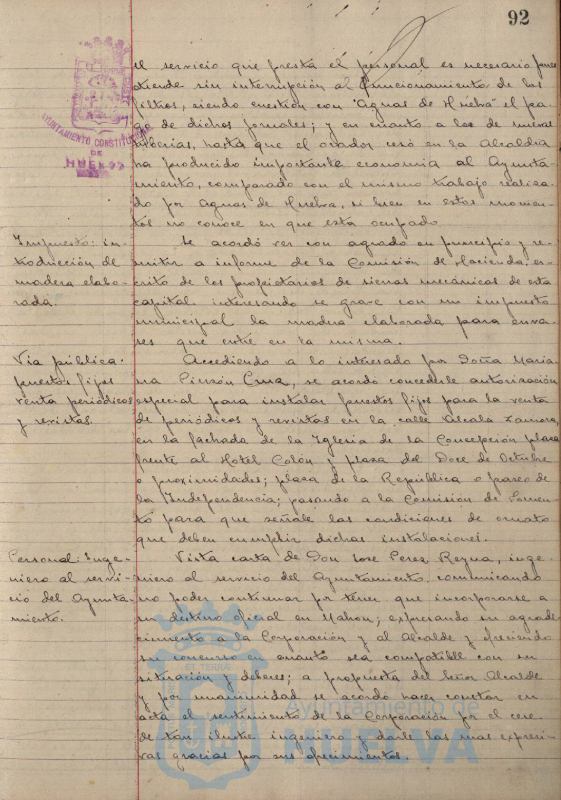 92
el servicio que presta el personal es necesario pues
atiende sin interrupción al funcionamiento de los
filtros, siendo cuestión con "Aguas de Huelva" el pa-
go de dichos jornales; y en cuanto a los de nuevas
tuberías, hasta que el orador cesó en la Alcaldía
ha producido importante economía al Ayunta-
miento, comparado con el mismo trabajo realiza-
do por Aguas de Huelva, si bien en estos momen-
tos no conoce en que está ocupado.
AYUNTAMIENTO CONSTITUCIONAL
DE
HUELVA
Impuesto: in-
troducción de
madera elabo-
rada.
Se acordó ver con agrado en principio y re-
mitir a informe de la Comisión de Hacienda, es-
crito de los propietarios de sierras mecánicas de esta
capital interesando se grave con un impuesto
municipal la madera elaborada para enva-
ses que entre en la misma.
Vía pública:
puestos fijos
venta periódicos
y revistas.
Accediendo a lo interesado por Doña Maria-
na Pinzón, se acordó concederle autorización
especial para instalar puestos fijos para la venta
de periódicos y revistas en la calle Alcalá Zamora,
en la fachada de la Iglesia de la Concepción, plaza
frente al Hotel Colón y plaza del Doce de Octubre
o proximidades; plaza de la República o paseo de
la Independencia; pasando a la Comisión de Fomen-
to para que señale las condiciones de ornato
que deben cumplir dichas instalaciones.
Personal: Inge-
niero al servi-
cio del Ayunta-
miento.
Vista carta de Don José Pérez Reyna, inge-
niero al servicio del Ayuntamiento comunicando
no poder continuar por tener que incorporarse a
su destino oficial en Mahon, expresando su agrade-
cimiento a la Corporación y al Alcalde y ofreciendo
su concurso en cuanto sea compatible con su
situación y deberes; a propuesta del Señor Alcalde
y por unanimidad se acordó hacer constar en
acta el sentimiento de la Corporación por el cese
de tan ilustre ingeniero y darle las mas expresi-
vas gracias por sus ofrecimientos.
Ayuntamiento de
HUELVA